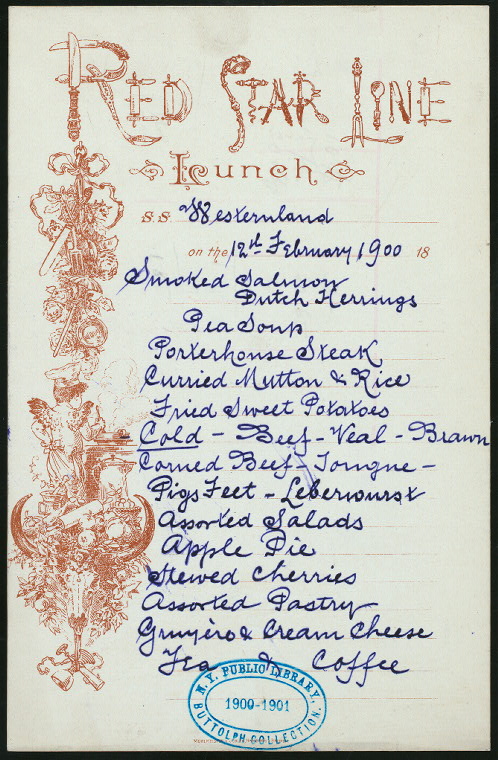 RED STAR LINE
Lunch
S.S. Westernland
on the 12th February 1900 18
Smoked Salmon
Dutch Herrings
Pea Soup
Porterhouse Steak
Curried Mutton & Rice
Fried Sweet Potatoes
Cold - Beef - Veal - Brawn
Corned Beef - Tongue -
Pigs Feet - Leberwurst
Assorted Salads
Apple Pie
Stewed Cherries
Assorted Pastry
Gruyère & Cream Cheese
Tea & Coffee
N.Y. PUBLIC LIBRARY,
1900-1901
BUTTOLPH COLLECTION.